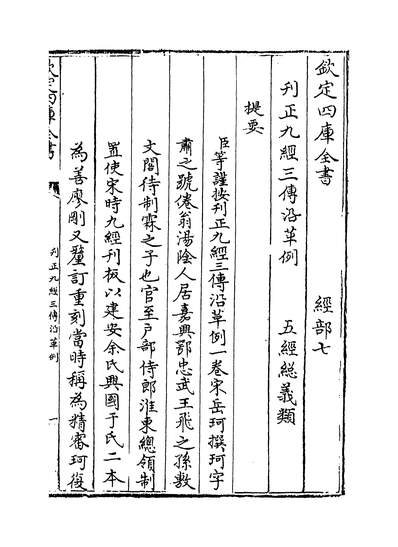 欽定四庫全書　經部七
刊正九經三傳沿革例　五經總義類
提要
臣等謹按刊正九經三傳沿革例一卷宋岳珂撰珂字
肅之號倦翁湯陰人居嘉興鄂忠武王飛之孫敷
文閣待制霖之子也官至戶部侍郎淮東總領制
置使宋時九經刊板以建安余氏興國于氏二本
為善廖剛又釐訂重刻當時稱為精審珂復
欽定四庫全書
刊正九經三傳沿革例
一